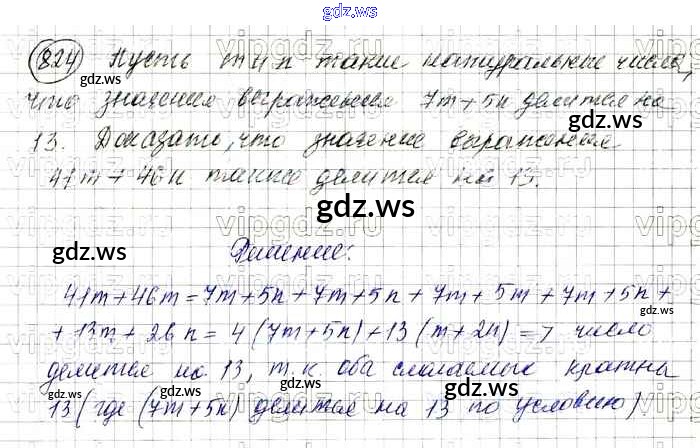 gdz.ws
824 Пусть m и n такие натуральные числа,
что значение выражения 7m+5n делится на
13. Доказать, что значение выражения
41m+46n также делится на 13.
Решение:
41m+46m=7m+5n+7m+5n+7m+5m+7m+5n+
+13m+26n=4(7m+5n)+13(m+2n)=> число
делится на 13, т.к оба слагаемых кратны
13(где (7m+5n) делится на 13 по условию)
gdz.ws
gdz.ws
gdz.ws
gdz.ws
gdz.ws
gdz.ws
gdz.ws
gdz.ws
vipgdz.ru